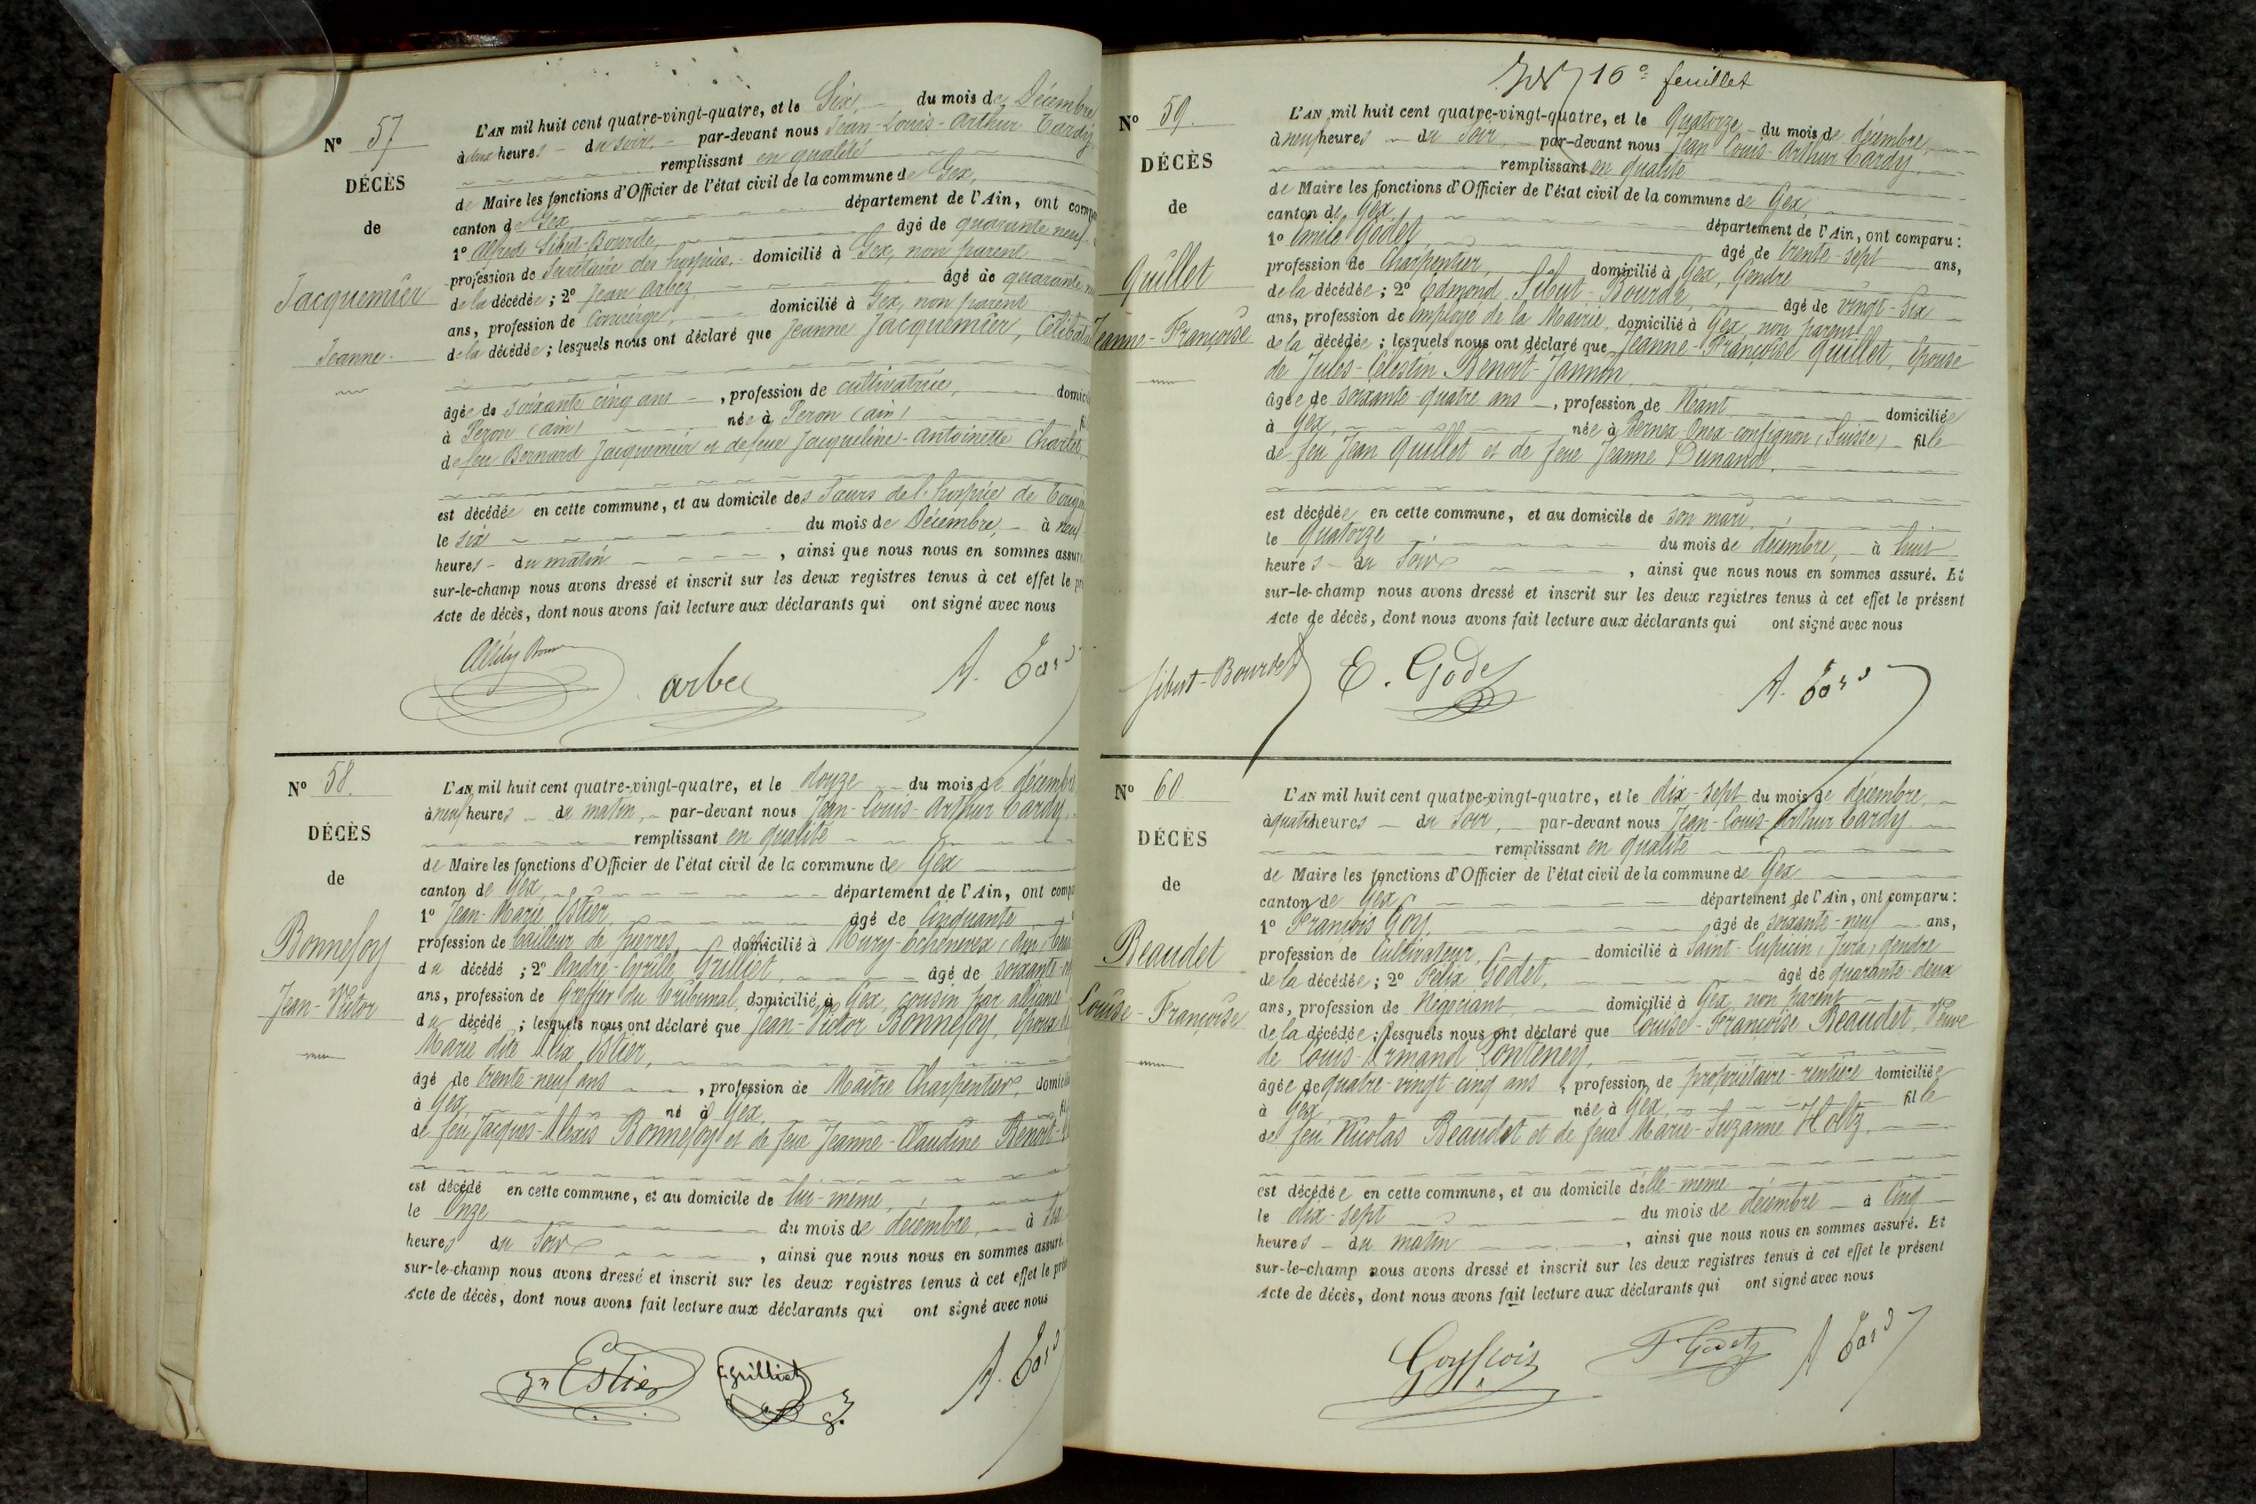 Nº 57
DÉCÈS
de
Jacquemier
Jeanne
L'AN mil huit cent quatre-vingt-quatre, et le Six du mois de Décembre
à deux heures du soir, par-devant nous Jean-Louis-Arthur Tardy
remplissant en qualité
de Maire les fonctions d'Officier de l'état civil de la commune de Gex,
canton de Gex département de l'Ain, ont comp
1º Alfred Sibut-Bourde, âgé de quarante neuf
profession de Secrétaire des hospices, domicilié à Gex, non parent
de la décédée; 2º Jean Arbez âgé de quarante
ans, profession de Concierge, domicilié à Gex, non parent
de la décédée; lesquels nous ont déclaré que Jeanne Jacquemier, Célibataire
âgée de soixante cinq ans, profession de cultivatrice, domici
à Peron (ain) née à Peron (ain)
de feu Bernard Jacquemier et de feue Jacqueline-Antoinette Charlet,
est décédée en cette commune, et au domicile des Sœurs de l'hospice de Tougin
le six du mois de Décembre, à neuf
heures du matin, ainsi que nous nous en sommes assuré
sur-le-champ nous avons dressé et inscrit sur les deux registres tenus à cet effet le pr
Acte de décès, dont nous avons fait lecture aux déclarants qui ont signé avec nous
arbez A. Tardy
Nº 58.
DÉCÈS
de
Bonnefoy
Jean-Victor
L'AN mil huit cent quatre-vingt-quatre, et le douze du mois de décembre
à neuf heures du matin, par-devant nous Jean-Louis-Arthur Tardy,
remplissant en qualité
de Maire les fonctions d'Officier de l'état civil de la commune de Gex
canton de Gex, département de l'Ain, ont compa
1º Jean-Marie Estier, âgé de Cinquante
profession de tailleur de pierres, domicilié à Mury-Echenevex (Ain)
du décédé; 2º André-Cyrille Grilliet, âgé de soixante
ans, profession de Greffier du tribunal, domicilié à Gex, cousin par alliance
du décédé; lesquels nous ont déclaré que Jean-Victor Bonnefoy, époux de
Marie dite Alix Estier,
âgé de trente-neuf ans, profession de Maître Charpentier, domicilié
à Gex, né à Gex,
de feu Jacques-Alexis Bonnefoy et de feue Jeanne-Claudine Benoit-
est décédé en cette commune, et au domicile de lui-même,
le Onze du mois de décembre, à six
heures du soir, ainsi que nous nous en sommes assuré.
sur-le-champ nous avons dressé et inscrit sur les deux registres tenus à cet effet le pré
Acte de décès, dont nous avons fait lecture aux déclarants qui ont signé avec nous
Jn Estier C. Grilliet A. Tardy
16e feuillet
Nº 59.
DÉCÈS
de
Quillet
Jeanne-Françoise
L'AN mil huit cent quatre-vingt-quatre, et le Quatorze du mois de décembre,
à neuf heures du soir, par-devant nous Jean Louis-Arthur Tardy,
remplissant en qualité
de Maire les fonctions d'Officier de l'état civil de la commune de Gex,
canton de Gex, département de l'Ain, ont comparu:
1º Emile Godet, âgé de trente-sept ans,
profession de Charpentier, domicilié à Gex, Gendre
de la décédée; 2º Edmond Sibut-Bourde, âgé de vingt-six
ans, profession de employé de la Mairie, domicilié à Gex, non parent
de la décédée; lesquels nous ont déclaré que Jeanne-Françoise Quillet, Epouse
de Jules-Célestin Benoit-Jannin,
âgée de soixante quatre ans, profession de Néant domiciliée
à Gex, née à Bernex-Onex-confignon (Suisse) fille
de feu Jean Quillet et de feue Jeanne Dunand,
est décédée en cette commune, et au domicile de son mari,
le Quatorze du mois de décembre, à huit
heures du soir, ainsi que nous nous en sommes assuré. Et
sur-le-champ nous avons dressé et inscrit sur les deux registres tenus à cet effet le présent
Acte de décès, dont nous avons fait lecture aux déclarants qui ont signé avec nous
Sibut-Bourde E. Godet A. Tardy
Nº 60
DÉCÈS
de
Beaudet
Louise-Françoise
L'AN mil huit cent quatre-vingt-quatre, et le dix-sept du mois de décembre,
à quatre heures du soir, par-devant nous Jean-Louis-Arthur Tardy
remplissant en qualité
de Maire les fonctions d'Officier de l'état civil de la commune de Gex
canton de Gex département de l'Ain, ont comparu:
1º François Goy, âgé de soixante-neuf ans,
profession de Cultivateur, domicilié à Saint-Lupicin (Jura) gendre
de la décédée; 2º Félix Godet, âgé de quarante-deux
ans, profession de Négociant, domicilié à Gex, non parent
de la décédée; lesquels nous ont déclaré que Louise-Françoise Beaudet, Veuve
de Louis-Armand Ponteney,
âgée de quatre-vingt-cinq ans, profession de propriétaire-rentière domiciliée
à Gex née à Gex, fille
de feu Nicolas Beaudet et de feue Marie-Suzanne Holtz,
est décédée en cette commune, et au domicile d'elle-même
le dix-sept du mois de décembre à Cinq
heures du matin, ainsi que nous nous en sommes assuré. Et
sur-le-champ nous avons dressé et inscrit sur les deux registres tenus à cet effet le présent
Acte de décès, dont nous avons fait lecture aux déclarants qui ont signé avec nous
Goy fcois F. Godet A. Tardy